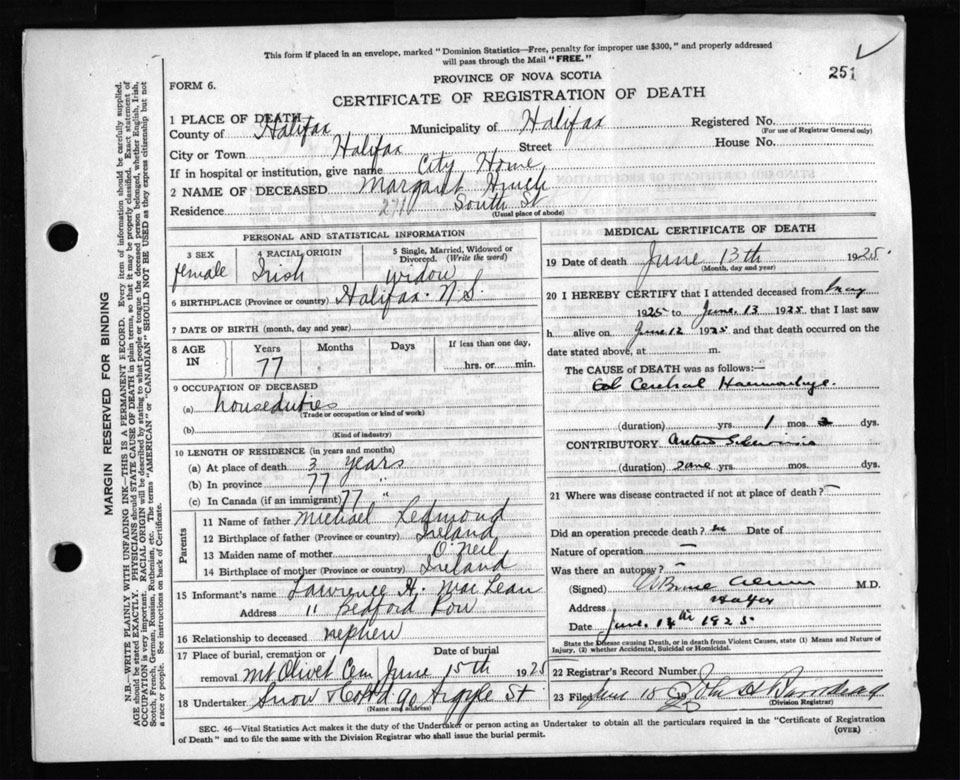 This form if placed in an envelope, marked "Dominion Statistics—Free, penalty for improper use $300," and properly addressed
will pass through the Mail "FREE."
251
FORM 6.
PROVINCE OF NOVA SCOTIA
CERTIFICATE OF REGISTRATION OF DEATH
1 PLACE OF DEATH
County of Halifax Municipality of Halifax Registered No.
(For use of Registrar General only)
City or Town Halifax Street House No.
If in hospital or institution, give name City Home
2 NAME OF DECEASED Margaret
Residence 271 South St
(Usual place of abode)
MARGIN RESERVED FOR BINDING
N.B.—WRITE PLAINLY WITH UNFADING INK—THIS IS A PERMANENT RECORD. Every item of information should be carefully supplied.
AGE should be stated EXACTLY. PHYSICIANS should STATE CAUSE OF DEATH in plain terms, so that it may be properly classified. Exact statement of
OCCUPATION is very important. RACIAL ORIGIN will be described by stating to what people or tongue the deceased person belonged, whether English, Irish,
Scotch, French, German, Russian, Ruthenian, etc. The terms "AMERICAN" or "CANADIAN" SHOULD NOT BE USED as they express citizenship but not
a race or people. See instructions on back of Certificate.
PERSONAL AND STATISTICAL INFORMATION
3 SEX
female
4 RACIAL ORIGIN
Irish
5 Single, Married, Widowed or
Divorced. (Write the word)
widow
6 BIRTHPLACE (Province or country) Halifax N.S.
7 DATE OF BIRTH (month, day and year)
8 AGE
IN
Years
77
Months
Days
If less than one day,
hrs. or min.
9 OCCUPATION OF DECEASED
(a) houseduties
(Trade or occupation or kind of work)
(b)
(Kind of industry)
10 LENGTH OF RESIDENCE (in years and months)
(a) At place of death 3 years
(b) In province 77 "
(c) In Canada (if an immigrant) 77 "
Parents
11 Name of father Michael Redmond
12 Birthplace of father (Province or country) Ireland
13 Maiden name of mother O'Neil
14 Birthplace of mother (Province or country) Ireland
15 Informant's name Lawrence H. MacLean
Address " Bedford Row
16 Relationship to deceased nephew
17 Place of burial, cremation or Date of burial
removal Mt Olivet Cem June 15th 1925
18 Undertaker Snow & Co Ltd 90 Argyle St
(Name and address)
MEDICAL CERTIFICATE OF DEATH
19 Date of death June 13th 1925
(Month, day and year)
20 I HEREBY CERTIFY that I attended deceased from May
1925 to June 13 1925 that I last saw
h alive on June 12 1925 and that death occurred on the
date stated above, at m.
The CAUSE of DEATH was as follows:—
Haemorrhage
(duration) yrs. 1 mos. 3 dys.
CONTRIBUTORY
(duration) yrs. mos. dys.
21 Where was disease contracted if not at place of death? —
Did an operation precede death? no Date of
Nature of operation —
Was there an autopsy? —
(Signed) M.D.
Address Halifax
Date June 14th 1925
State the Disease causing Death, or in death from Violent Causes, state (1) Means and Nature of
Injury, (2) whether Accidental, Suicidal or Homicidal.
22 Registrar's Record Number
23 Filed June 18 19
(Division Registrar)
SEC. 46—Vital Statistics Act makes it the duty of the Undertaker or person acting as Undertaker to obtain all the particulars required in the "Certificate of Registration
of Death" and to file the same with the Division Registrar who shall issue the burial permit.
(OVER)